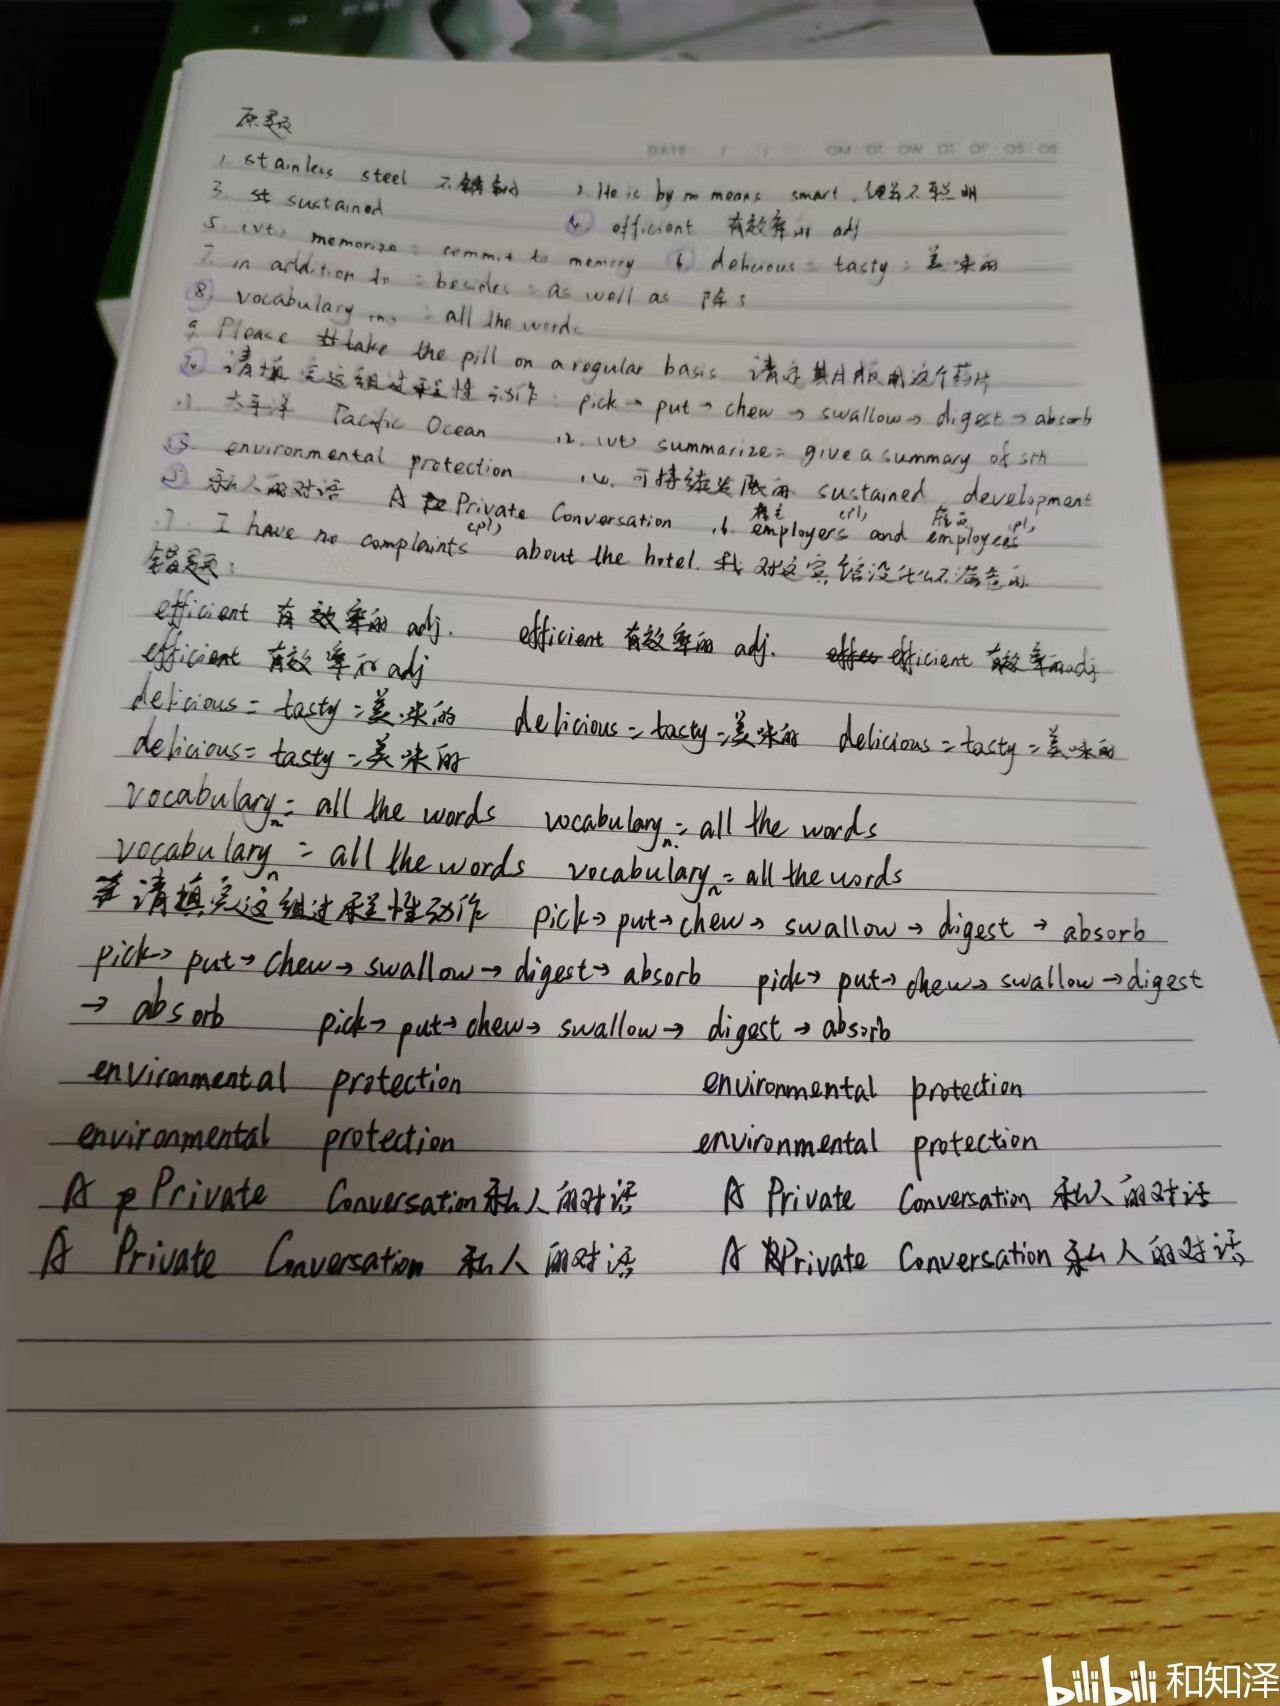 原题
1. stainless steel 不锈钢 2. He is by no means smart. 绝不聪明
3. st sustained 4. efficient 有效率的 adj
5. (vt) memorize = commit to memory 6. delicious = tasty = 美味的
7. in addition to = besides = as well as 除了
8. vocabulary (n) = all the words
9. Please take the pill on a regular basis 请定期服用这个药片
10. 请填完这组过程性动作: pick → put → chew → swallow → digest → absorb
11. 太平洋 Pacific Ocean 12. (vt) summarize = give a summary of sth
13. environmental protection 14. 可持续发展的 sustained development
15. 私人的对话 A Private Conversation 16. 雇主 employers (pl) and 雇员 employees (pl)
17. I have no complaints (pl) about the hotel. 我对这宾馆没什么不满意的
错题:
efficient 有效率的 adj. efficient 有效率的 adj. effec efficient 有效率的 adj
efficient 有效率的 adj
delicious = tasty = 美味的 delicious = tasty = 美味的 delicious = tasty = 美味的
delicious = tasty = 美味的
vocabulary n = all the words vocabulary n. = all the words
vocabulary n = all the words vocabulary n = all the words
请填完这组过程性动作 pick → put → chew → swallow → digest → absorb
pick → put → chew → swallow → digest → absorb pick → put → chew → swallow → digest
→ absorb pick → put → chew → swallow → digest → absorb
environmental protection environmental protection
environmental protection environmental protection
A p Private Conversation 私人的对话 A Private Conversation 私人的对话
A Private Conversation 私人的对话 A Private Conversation 私人的对话
bilibili 和知泽